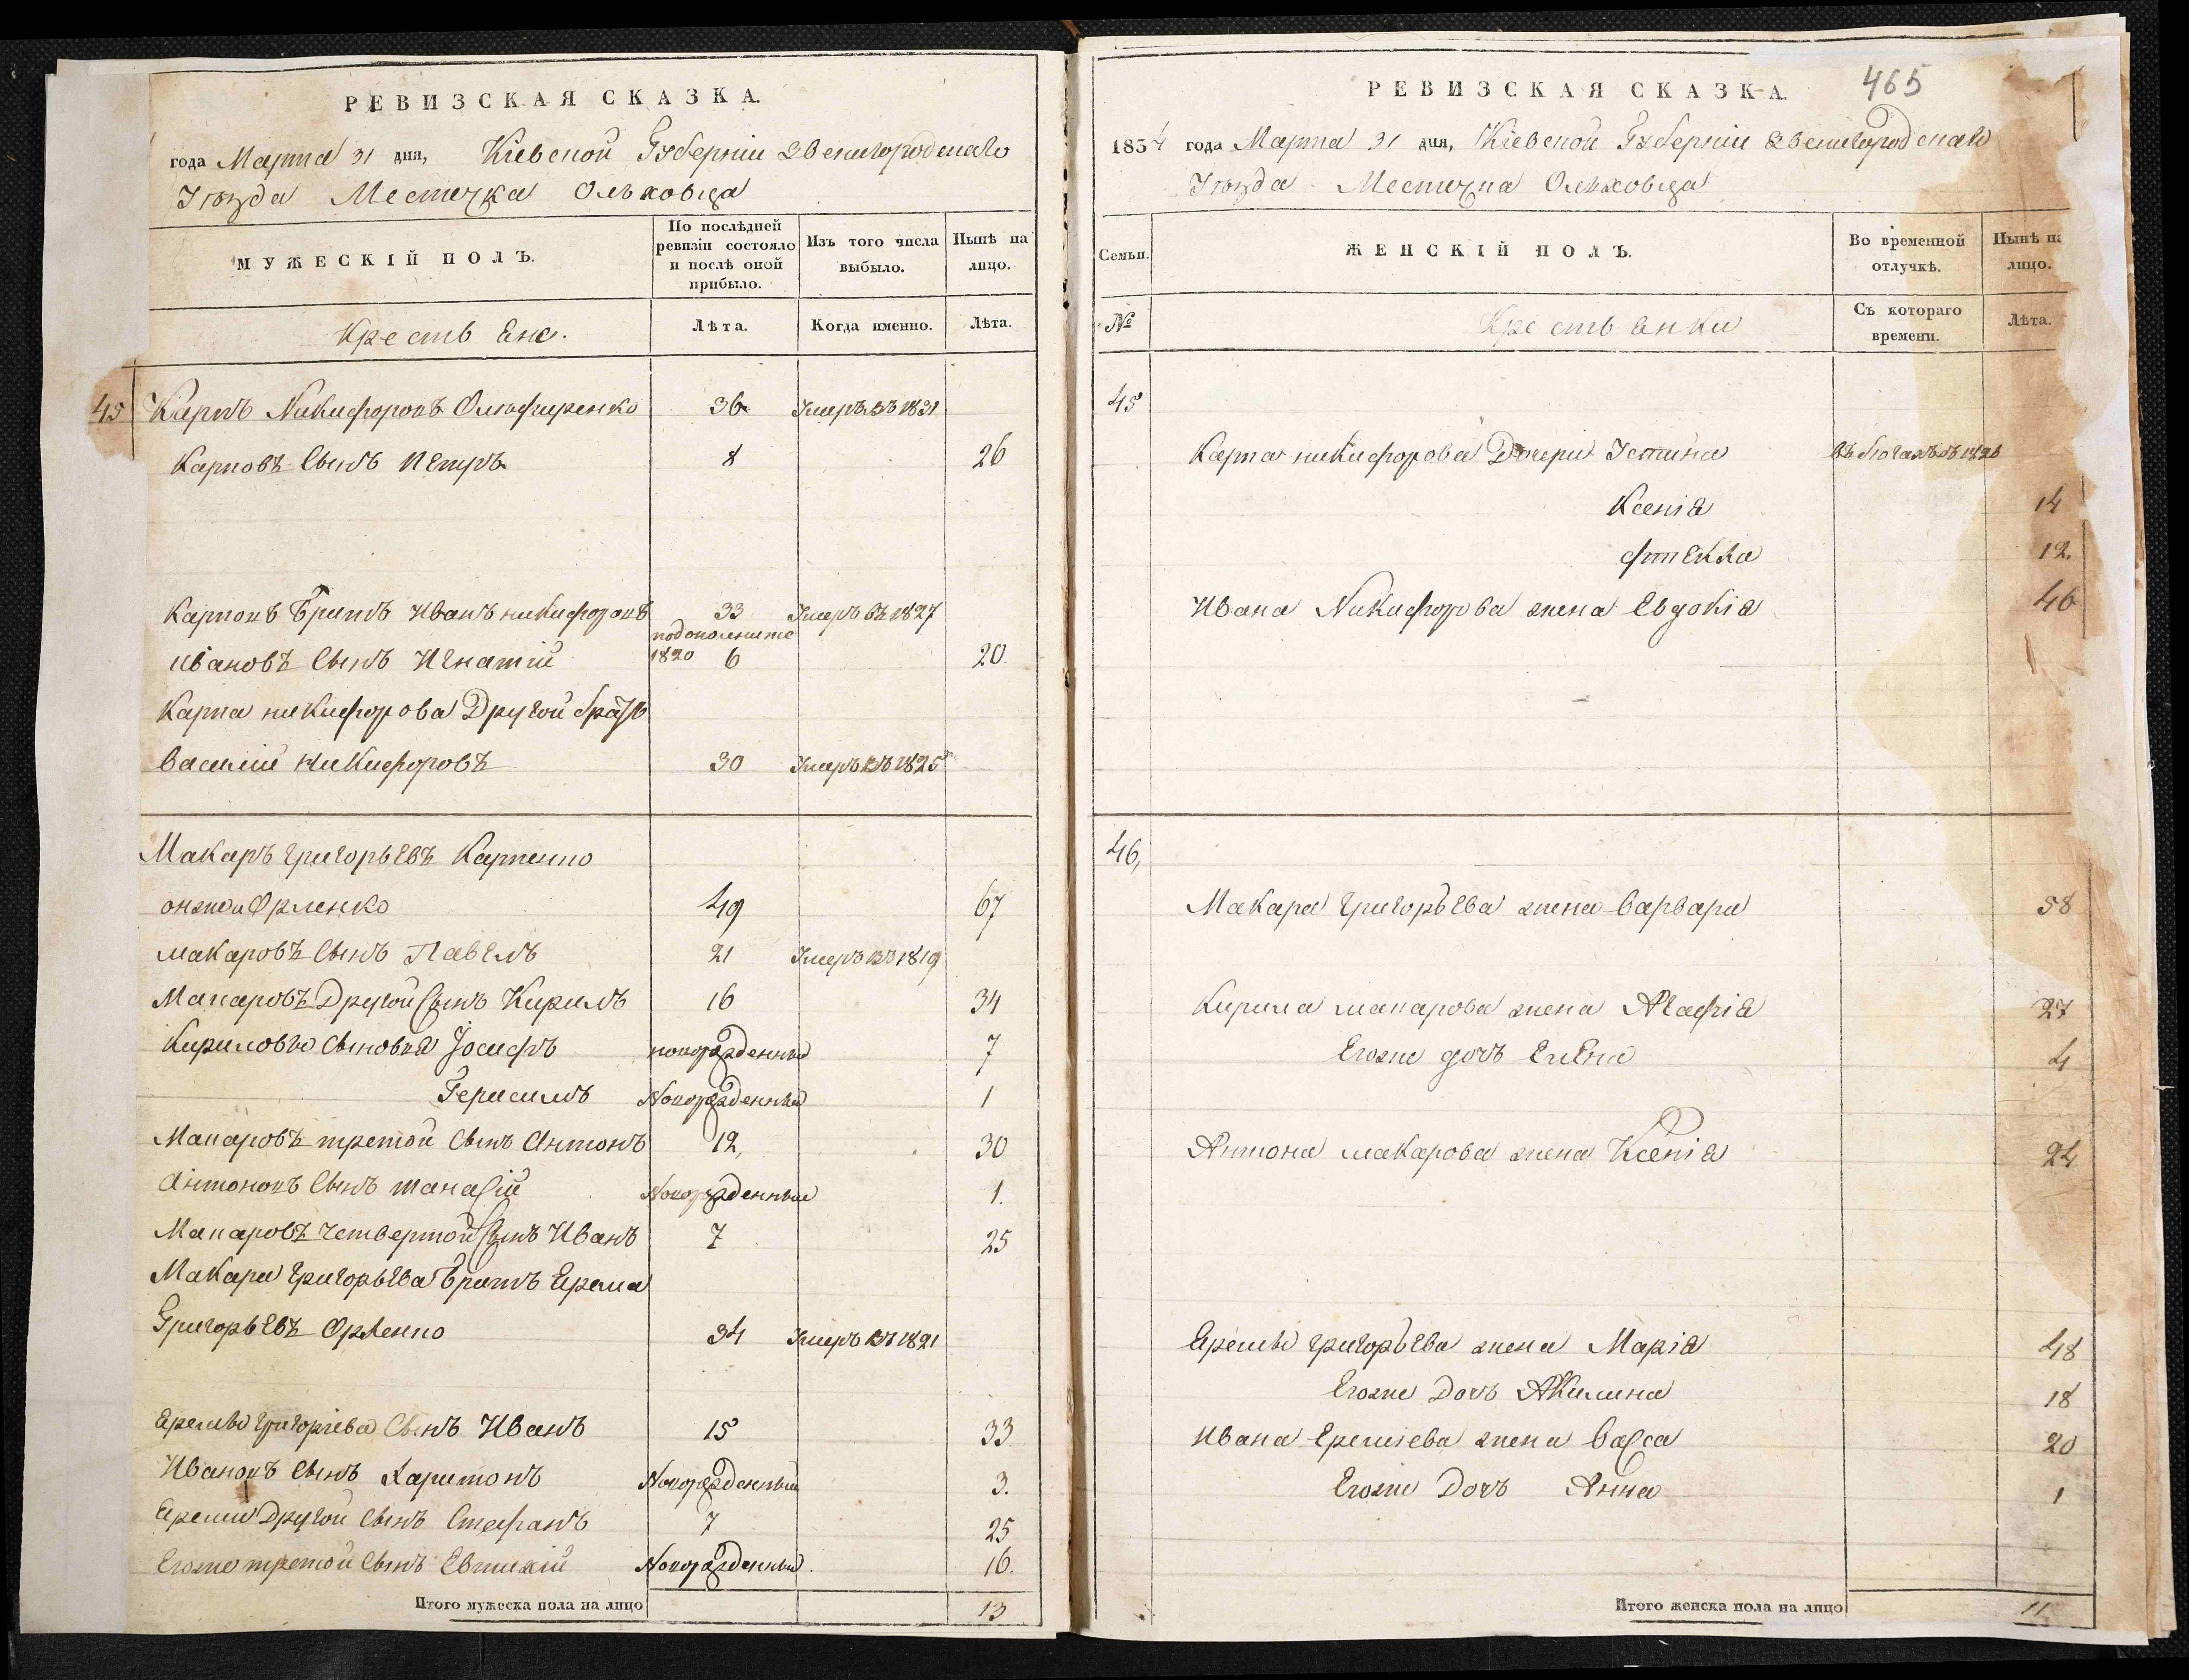 РЕВИЗСКАЯ СКАЗКА.
года Марта 31 дня, Кіевской Губерніи Звенигородскаго
Уѣзда Местечка Ольховца
МУЖЕСКІЙ ПОЛЪ.
По послѣдней ревизіи состояло и послѣ оной прибыло.
Изъ того числа выбыло.
Нынѣ на лицо.
Крестьяне.
Лѣта.
Когда именно.
Лѣта.
45 Карпъ Никифоровъ Ольфиренко 36 Умеръ въ 1831
Карповъ Сынъ Петръ 8 26
Карповъ Братъ Иванъ никифоровъ 33 Умеръ въ 1827
1820
ивановъ Сынъ Игнатій 6 20
Карпа никифорова Другой братъ
василій никифоровъ 30 Умеръ въ 1825
Макаръ григорьевъ Карпенко
онже и Орленко 49 67
макаровъ Сынъ Павелъ 21 Умеръ въ 1819
Макаровъ Другой Сынъ Кирилъ 16 34
Кириловы Сыновья Іосифъ новорожденный 7
Герасимъ Новорожденный 1
Макаровъ третой Сынъ Антонъ 12, 30
Антоновъ Сынъ танасій Новорожденный 1.
Макаровъ четвертой Сынъ Иванъ 7 25
Макара григорьева братъ Ерема
Григорьевъ Орленко 34 Умеръ въ 1821
Еремы григоріева Сынъ Иванъ 15 33
Ивановъ Сынъ Харитонъ Новорожденный 3.
Еремы Другой Сынъ Стефанъ 7 25
Егоже третой Сынъ Евтихій Новорожденный 16.
Итого мужеска пола на лицо 13
465
РЕВИЗСКАЯ СКАЗКА.
1834 года Марта 31 дня, Кіевской Губерніи Звенигородскаго
Уѣзда Местечка Ольховца
Семьи.
ЖЕНСКІЙ ПОЛЪ.
Во временной отлучкѣ.
Нынѣ на лицо.
№
Крестьянки
Съ котораго времени.
Лѣта.
45
Карпа никифорова Дочери Устина 1826
Ксенія 14
фтекла 12.
Ивана Никифорова жена Евдокія 46
46,
Макара григорьева жена варвара 58
Кирила макарова жена Агафія 27
Егоже дочь Елена 4
Антона макарова жена Ксенія 24
Еремы григорьева жена Марія 48
Егоже Дочь Акилина 18
Ивана Еремиева жена васса 20
Егоже Дочь Анна 1
Итого женска пола на лицо 11